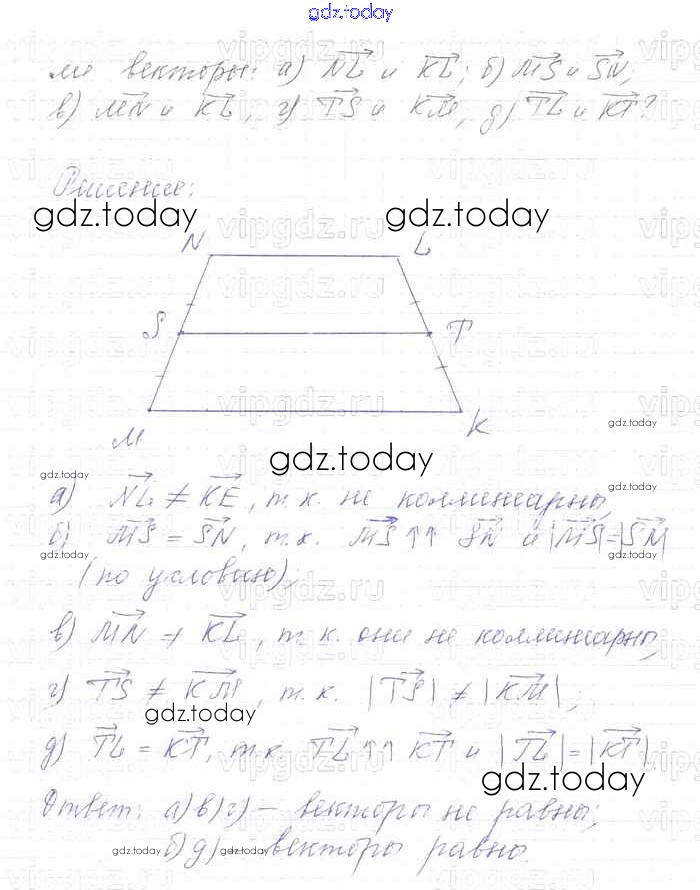 gdz.today
ли векторы: а) NL и KL; б) MS и SN;
в) MN и KL, г) TS и KM, д) TL и KT?
Решение:
gdz.today gdz.today
N L
S T
M K
gdz.today
gdz.today
gdz.today gdz.today
а) NL ≠ KE, т.к. не коллинеарны,
б) MS = SN, т.к. MS ↑↑ SN и |MS|=|SN|
gdz.today gdz.today
(по условию);
в) MN ≠ KL, т.к. они не коллинеарны,
г) TS ≠ KM, т.к. |TS| ≠ |KM|;
gdz.today
д) TL = KT, т.к. TL ↑↑ KT и |TL|=|KT|
gdz.today
Ответ: а) в) г) – векторы не равны;
б) д) – векторы равны.
gdz.today gdz.today